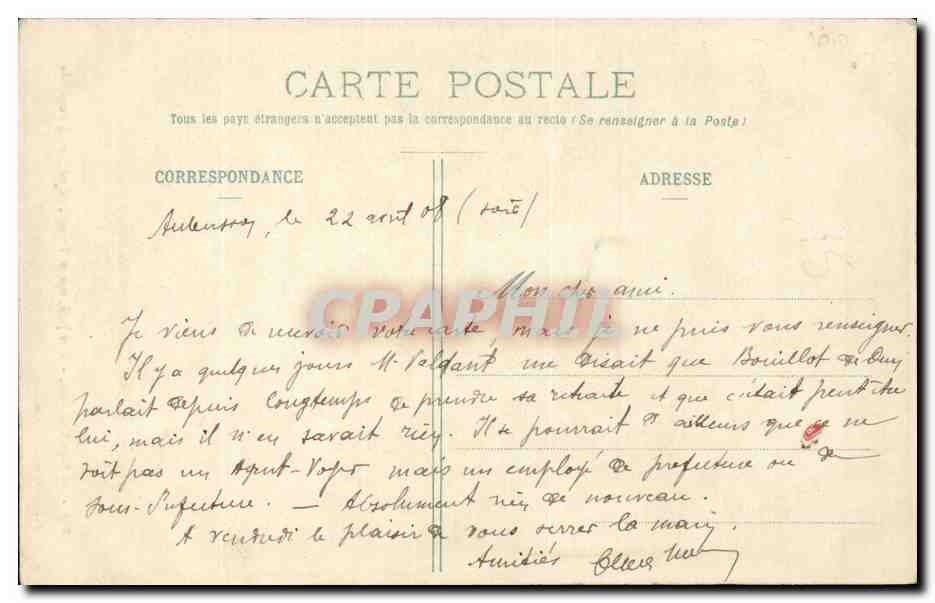 CARTE POSTALE
Tous les pays étrangers n'acceptent pas la correspondance au recto (Se renseigner à la Poste)
CORRESPONDANCE
ADRESSE
Aubusson, le 22 août 08 (soir)
Mon cher ami.
CPAPHIL
Je viens de recevoir votre carte, mais je ne puis vous renseigner.
Il y a quelques jours M. Valdant me disait que Bouillot de
parlait depuis longtemps de prendre sa retraite et que c'était peut être
lui, mais il n'en savait rien. Il se pourrait d'ailleurs que ce ne
soit pas un Agent-Voyer mais un employé de préfecture ou de
Sous-Préfecture. — Absolument rien de nouveau.
A vendredi le plaisir de vous serrer la main.
Amitiés